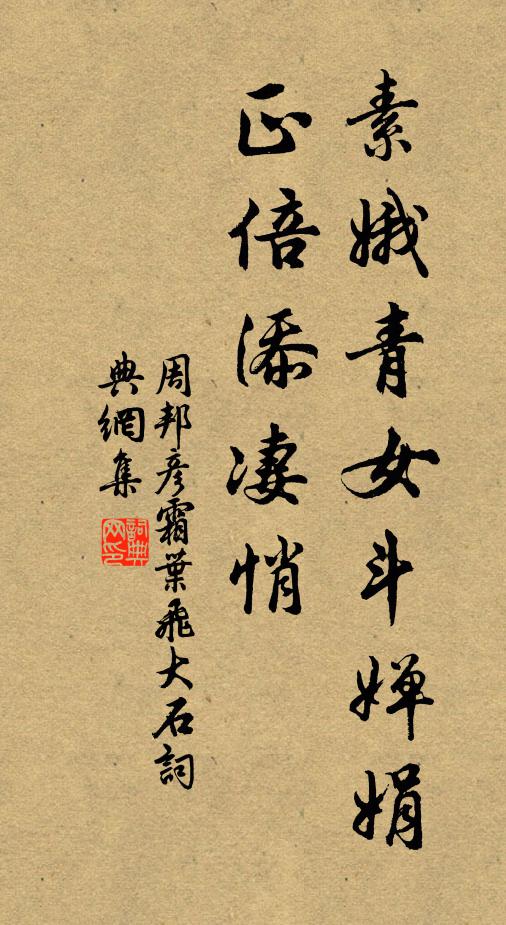 素娥青女斗婵娟
正倍添凄悄
周邦彦霜葉飛大石詞
典網集
詞典網印